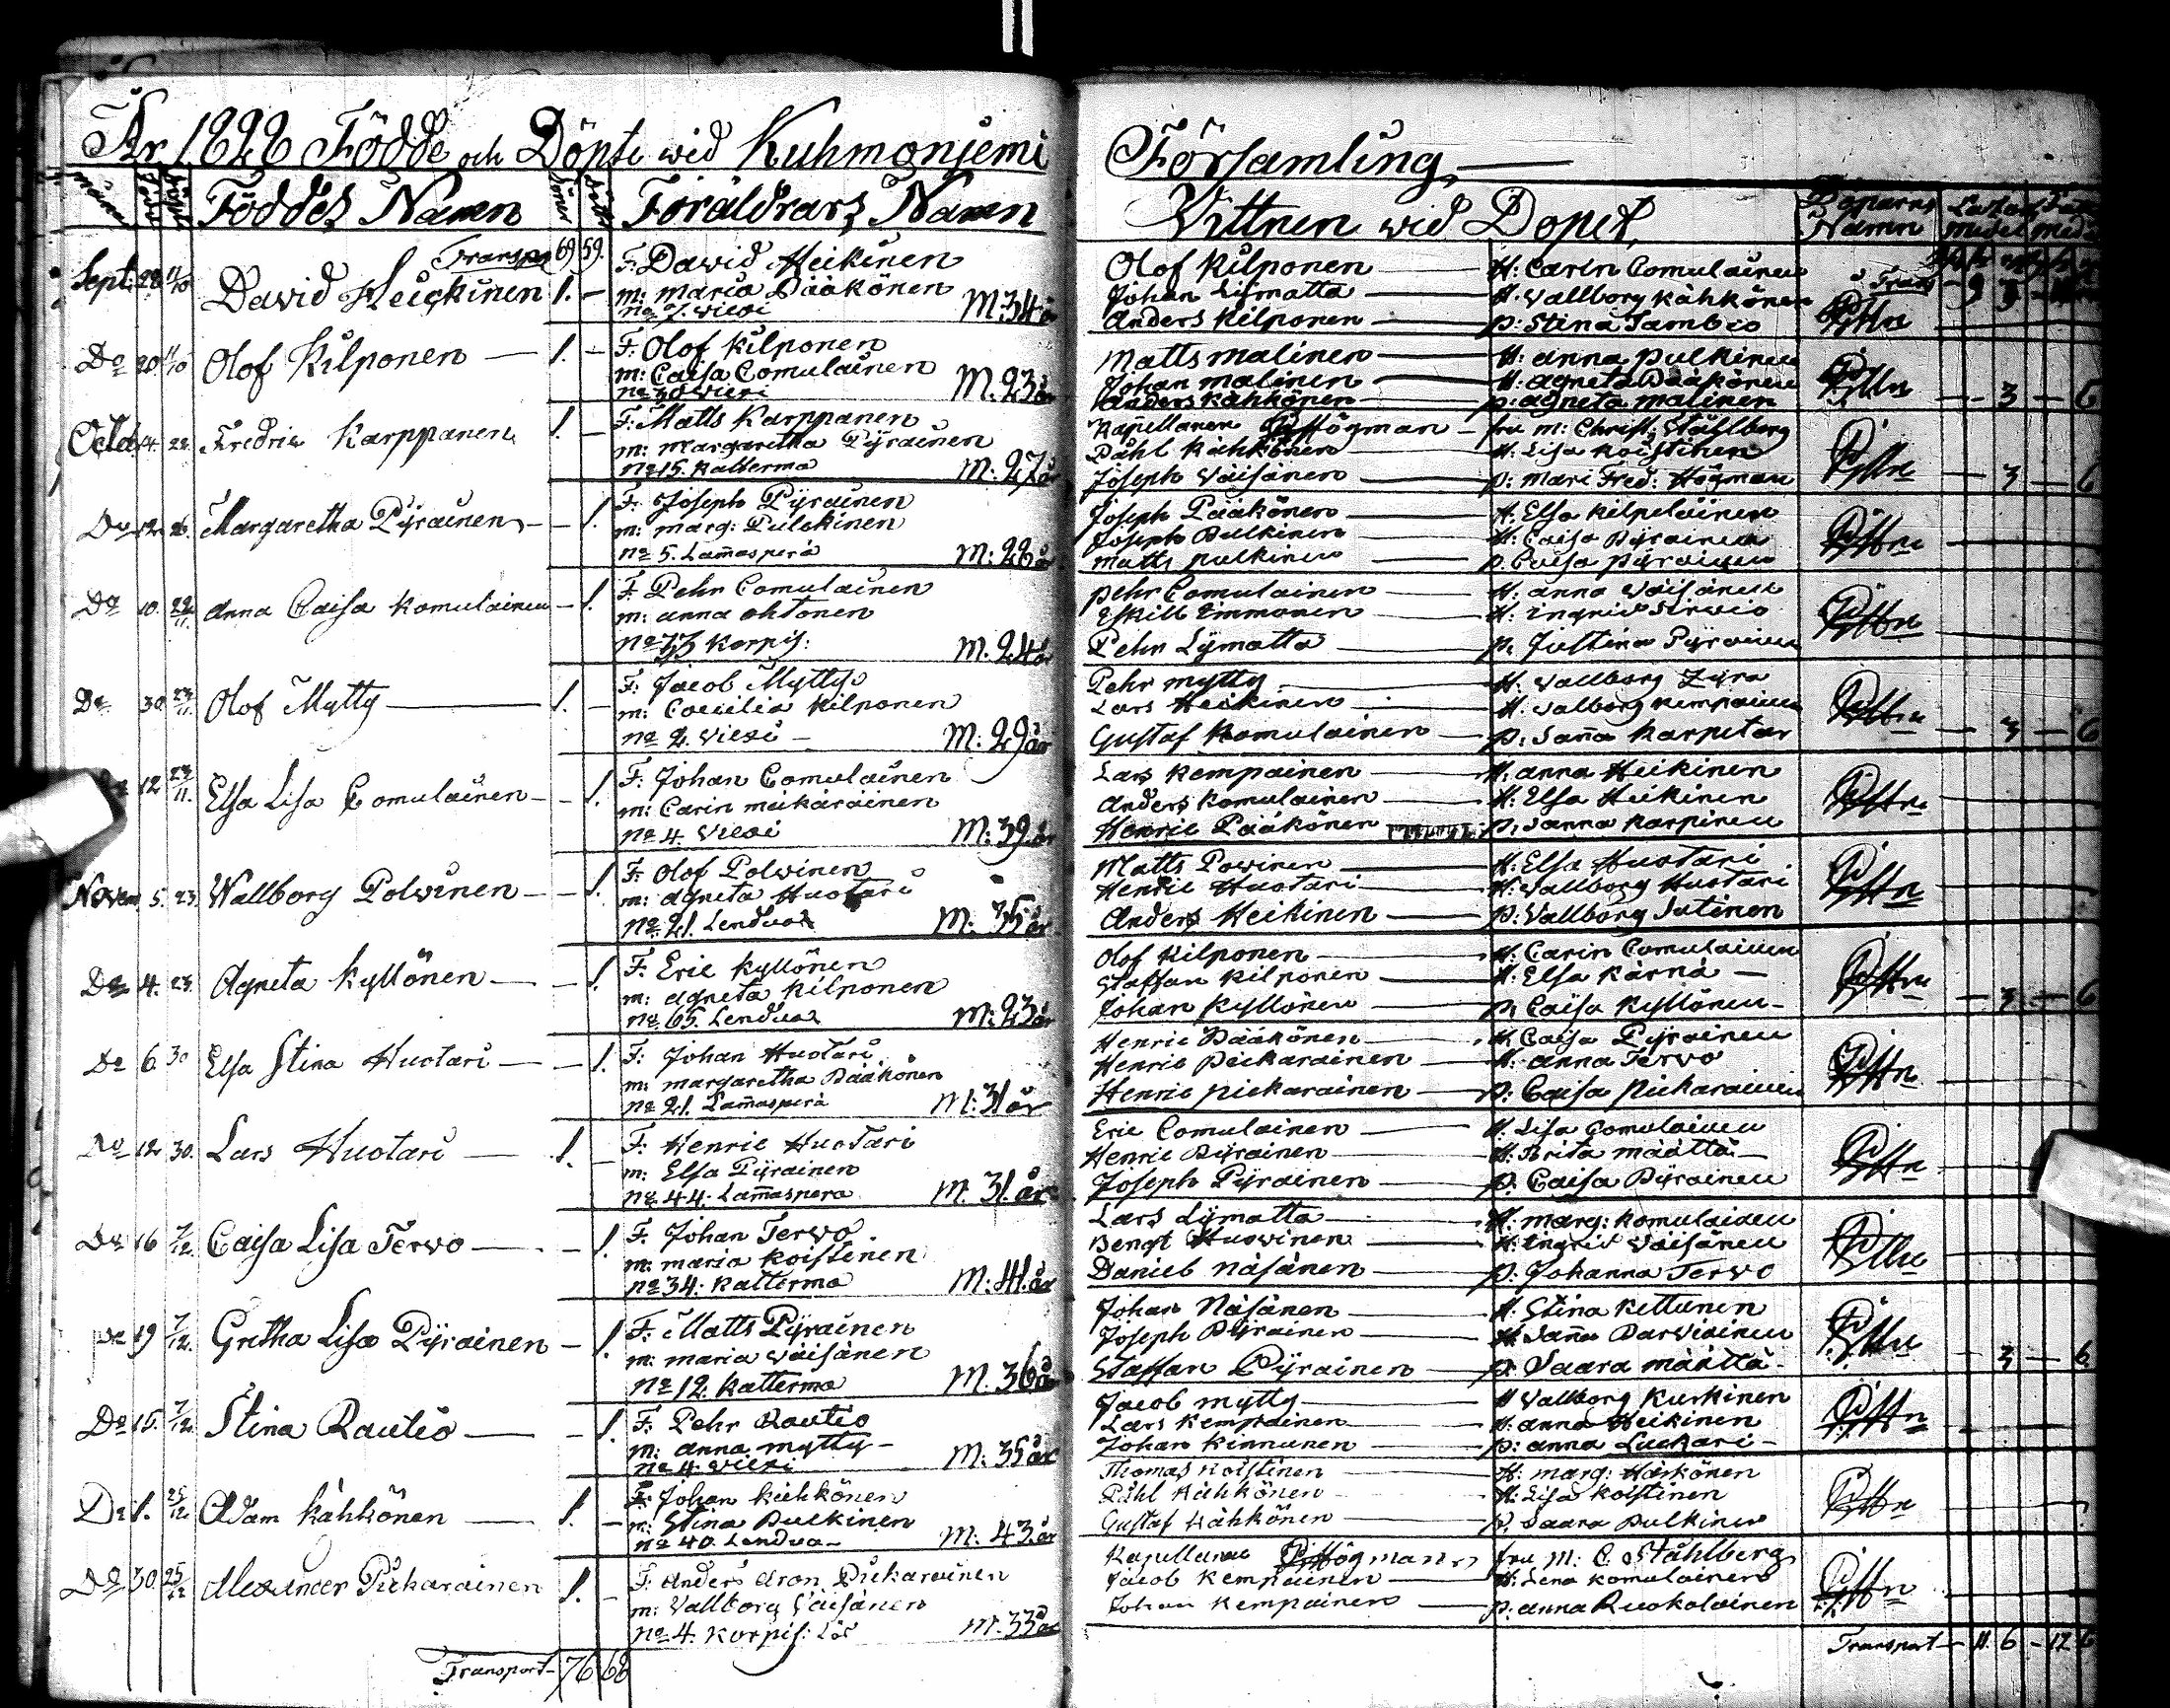 År 1828 Födde och Döpte wid Kuhmoniemi Församling
Födde Döpte Föddes Namn Söner Föräldrars Namn Vittnen wid Dopet Namn
Transp. 69 59.
Sept: 28 11/10 David Heickinen 1. –
F: David Heikinen
m: Maria Pääkönen
No 7. Wiexi M: 34 år
Olof Kilponen — H: Carin Comulainen
Johan Lijmatta — H: Wallborg Kähkönen
Anders Kilponen — p: Stina Tambio
Do 20 11/10 Olof Kilponen — 1. –
F: Olof Kilponen
m: Caisa Comulainen
No 30 Wiexi M: 23 år
Matts Malinen — H: Anna Pulkinen
Johan Malinen — H: Agneta Pääkönen
Anders Kähkönen — p: Agneta Malinen
– 3 – 6
Octob 4. 22. Fredric Karppanen 1. –
F: Matts Karppanen
m: Margaretha Pyrainen
No 15. Katterma M: 27 år
Kapellanen Högman – fru M: Christ: Ståhlberg
Påhl Kähkönen — H: Lisa Koistinen
Joseph Wäisänen — p: Mari Fred: Högman
– 3 – 6
Do 12. 26. Margaretha Pyrainen – 1.
F: Joseph Pyrainen
m: Marg: Pulckinen
No 5. Lam̄asperä M: 28 år
Joseph Pääkönen — H: Elsa Kilpeläinen
Joseph Pulkinen — H: Caisa Pyrainen
Matts Pulkinen — p. Caisa Pyrainen
Do 10. 22/11. Anna Caisa Komulainen – 1.
F: Pehr Comulainen
m: Anna Ohtonen
No 33 Korpis: M: 24 år
Pehr Comulainen — H: Anna Wäisänen
Eskill Timmonen — H: Ingrid Sirwio
Pehr Lijmatta — p. Justina Pyrainen
Do 30. 23/11. Olof Mytty — 1. –
F: Jacob Mytty
m: Caecilia Kilponen
No 2. Wiexi – M: 29 år
Pehr Mytty — H: Wallborg Zyra
Lars Heikinen — H: Walborg Kempainen
Gustaf Komulainen — p: San̄a Karpitar
– 3 – 6
12 23/11. Elsa Lisa Comulainen – 1.
F: Johan Comulainen
m: Carin Mickäräinen
No 4. Wiexi M: 39. år
Lars Kempainen — H: Anna Heikinen
Anders Komulainen — H: Elsa Heikinen
Henric Pääkönen — p. Sanna Karpinen
Novem 5. 23. Wallborg Polwinen – 1.
F: Olof Polwinen
m: Agneta Huotari
No 21. Lendua M: 35 år
Matts Powinen — H: Elsa Huotari
Henric Huotari — H: Wallborg Huotari
Anders Heikinen — p: Wallborg Sutinen
Do 4. 23. Agneta Kyllönen – 1.
F: Eric Kyllönen
m: Agneta Kilponen
No 65. Lendua M: 23 år
Olof Kilponen — H: Carin Comulainen
Staffan Kilponen — H: Elsa Kärnä
Johan Kyllönen — p. Caisa Kyllönen
– 3 – 6
Do 6. 30 Elsa Stina Huotari – 1.
F: Johan Huotari
m: Margaretha Pääkönen
No 21. Lam̄asperä M: 31 år
Henric Pääkönen — H. Caisa Pyrainen
Henric Pickarainen — H: Anna Terwo
Henric Pickarainen — p: Caisa Pickarainen
Do 12 30. Lars Huotari — 1. –
F: Henric Huotari
m: Elsa Pyrainen
No 44. Lam̄aspera M: 31. år
Eric Comulainen — H. Lisa Comulainen
Henric Pyrainen — H: Brita Määttä
Joseph Pyrainen — p. Caisa Pyrainen
Do 16 7/12. Caisa Lisa Terwo — 1.
F: Johan Terwo
m: Maria Koistinen
No 34. Katterma M: 41. år
Lars Lijmatta — H: Marg: Komulainen
Bengt Huowinen — H: Ingrid Wäisänen
Daniel Näsänen — p: Johanna Terwo
Do 19 7/12. Gretha Lisa Pyrainen – 1.
F: Matts Pyrainen
m: Maria Wäisänen
No 12. Katterma M. 36 år
Johan Näsänen — H. Stina Kettunen
Joseph Pyrainen — H: San̄a Parwiainen
Staffan Pyrainen — p. Saara Määttä
– 3 – 6.
Do 15. 7/12. Stina Rautio — 1.
F: Pehr Rautio
m: Anna Mytty –
No 4. Wiexi M: 35 år
Jacob Mytty — H Wallborg Kurkinen
Lars Kempainen — H: Anna Heikinen
Johan Kinnunen — p: Anna Luckari –
Do 1. 25/12. Adam Kähkönen — 1. –
F: Johan Kähkönen
m: Stina Pulkinen
No 40. Lendua – M: 43 år
Thomas Koistinen — H: Marg: Härkönen
Påhl Kähkönen — H: Lisa Koistinen
Gustaf Kähkönen — p. Saara Pulkinen
Do 30. 25/12 Alexander Pickarainen 1. –
F: Anders Aron Pickarainen
m: Wallborg Wäisänen
No 4. Korpis: Lös M: 33 år
Kapellanen Högman fru M: C. Ståhlberg
Jacob Kempainen — H: Lena Komulainen
Johan Kempainen — p: Anna Ruokolainen
Transport – 76 68
Transport – 11 6 – 17 6